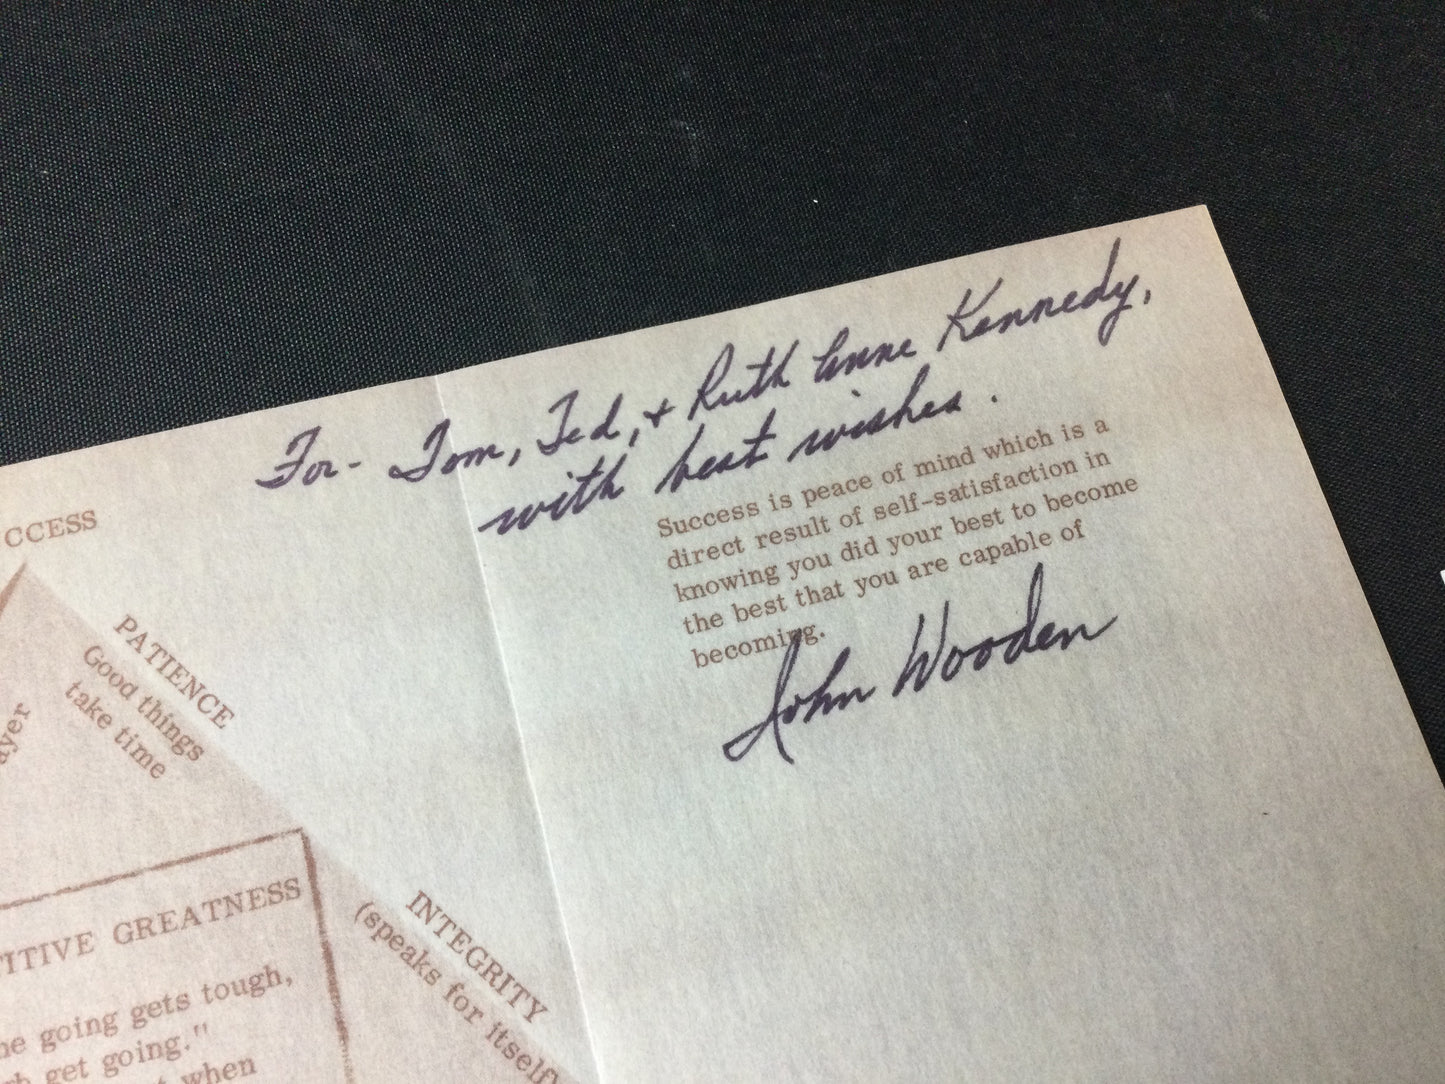 For- Tom, Ted, + Ruth Anne Kennedy,
with best wishes.
Success is peace of mind which is a
direct result of self-satisfaction in
knowing you did your best to become
the best that you are capable of
becoming.
John Wooden
CCESS
PATIENCE
Good things
take time
ayer
TITIVE GREATNESS
he going gets tough,
gh get going."
t when
INTEGRITY
(speaks for itself)